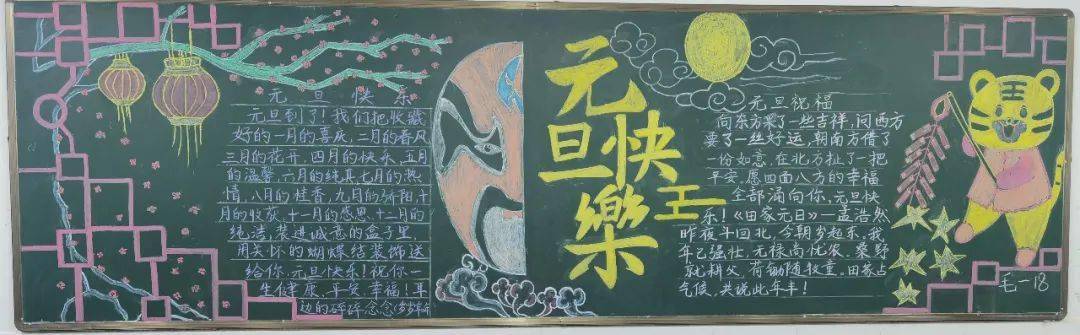 元旦快乐
元旦到了!我们把收藏
好的一月的喜庆,二月的春风
三月的花开,四月的快乐,五月
的温馨,六月的纯真七月的热
情,八月的桂香,九月的骄阳,十
月的收获,十一月的感恩,十二月的
纯洁,装进诚意的盒子里
用关怀的蝴蝶结装饰送
给你,元旦快乐!祝你一
生健康、平安、幸福!耳
边的碎碎念念
元旦
快樂
王
元旦祝福
向东方采了一些吉祥,问西方
要了一丝好运,朝南方借了
一份如意,在北方扯了一把
平安,愿四面八方的幸福
全部涌向你,元旦快
乐!《田家元日》—孟浩然
昨夜斗回北,今朝岁起东。我
年已强壮,无禄尚忧农。桑野
就耕父,荷锄随牧童。田家占
气候,共说此年丰!
毛一18